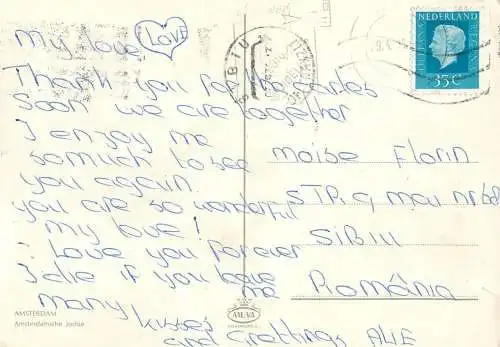 My love, LOVE
Thank you for the cartes
Soon we are together
I enjoy me
somuch to see
you again.
you are so wonderful
my love!
I Love you forever
I die if you leave
me
many kisses
and Greetings
NEDERLAND
35 c
SIBIU
Moise Florin
STR. 9 mai nr 68
SIBIU
România
AMSTERDAM
Amsterdamsche Jochie
MUVA